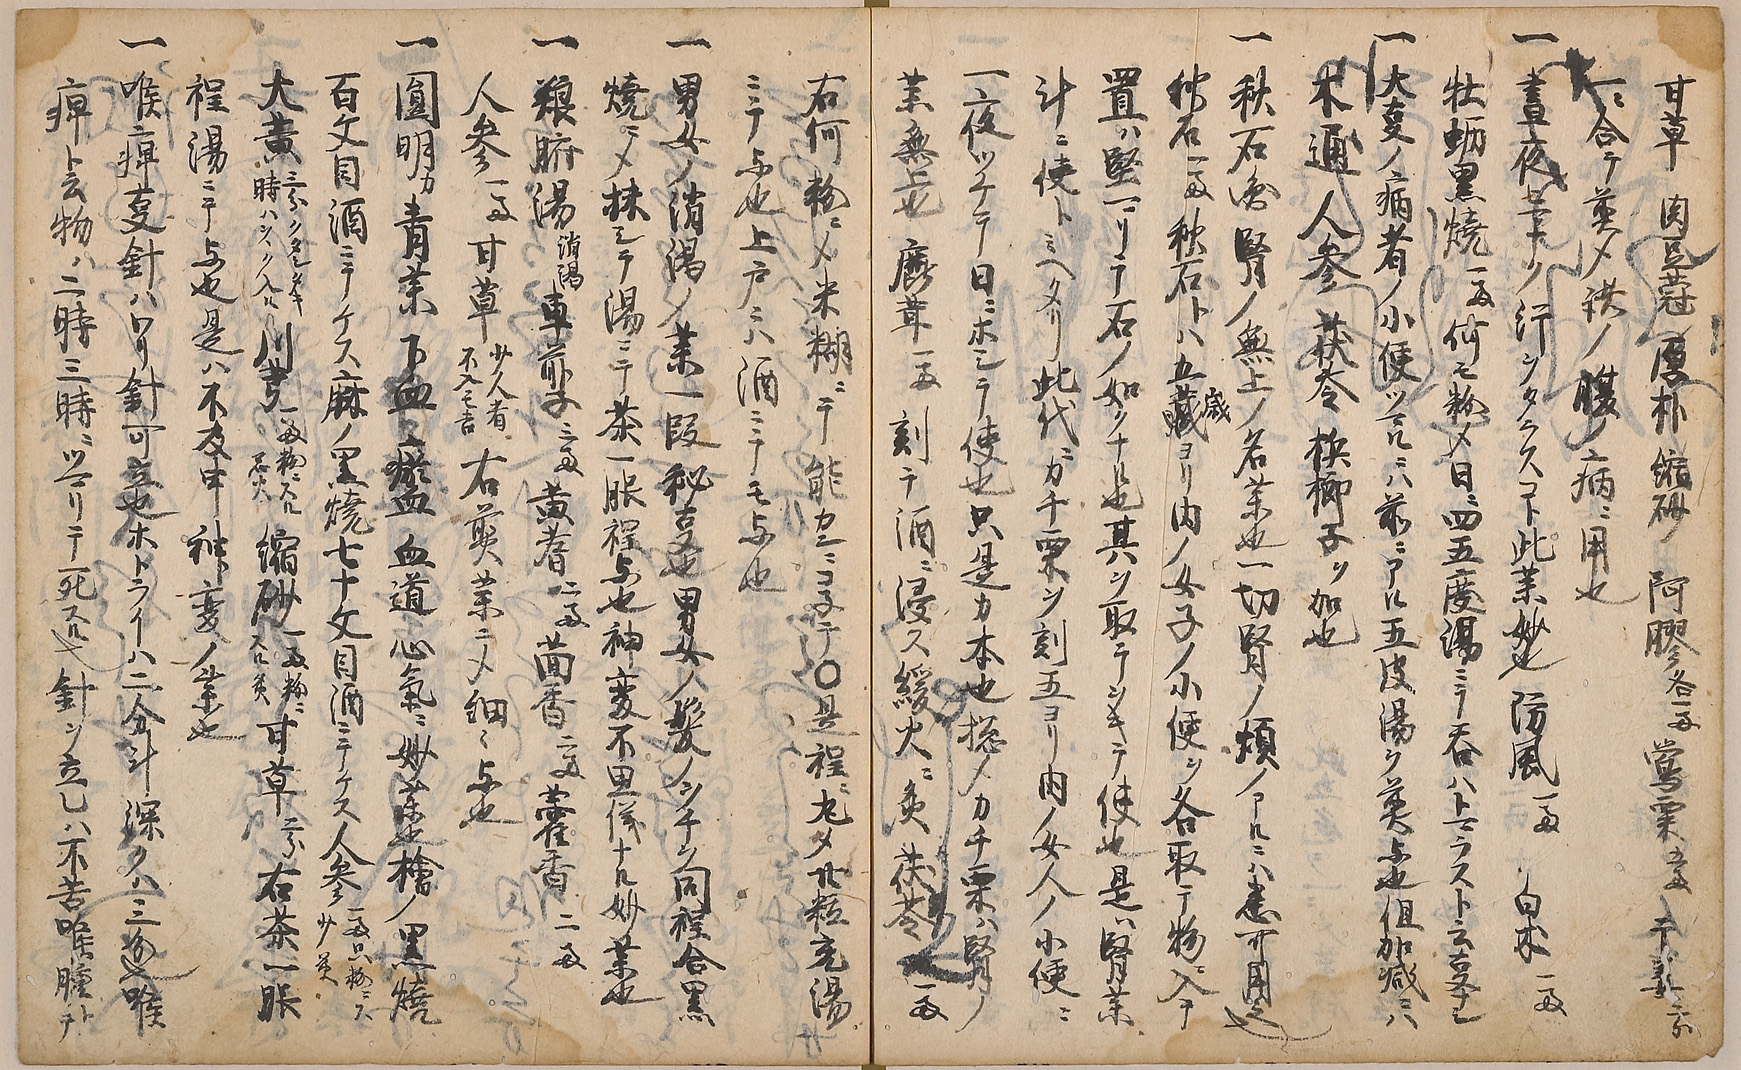 甘草 肉豆蔲 厚朴 縮砂 阿膠各一両 鶯粟 五両 干姜二分
一ニ合テ煎〆 禩ノ腹ノ病ニ用也
一 晝夜セキノ行シタラスコト此薬妙也 防風一両 白朮一両
牡蛎黒焼一両 何モ粉〆日ニ四五度湯ニテ呑ハトマラスト云叓ナシ
一 大叓ノ病者ノ小便ツマルニハ前ニアル五皮湯ヲ煎与也但加減ニハ
木通 人参 茯苓 梹榔子ヲ加也
一 秋石 腎ノ無上ノ名薬也一切腎ノ煩ノアルニハ悉可用之
秋石一両 秋石トハ五歳ヨリ内ノ女子ノ小便ヲ各取テ物ニ入テ
置ハ堅マリテ石ノ如クナル也其ヲ取テ使也是ハ腎薬
計ニ使トミヘタリ此代ニカチ栗ヲ刻五ヨリ内ノ女人ノ小便ニ
一夜ツケテ日ニホシテ使也只是カ本也惣〆カチ栗ハ腎ノ
薬無上也 鹿茸一両 刻テ酒ニ浸ス緩火ニ炙 茯苓一両
右何粉ニ〆米糊ニテ能カニコネテ〇是程ニ丸〆廿粒充湯
ニテ与也上戸ニハ酒ニテモ与也
一 男女ノ消渇ノ薬一段秘叓也男女ノ髪ノヲチヲ同程合黒
焼〆抹シテ湯ニテ茶一服程与也神変不思儀ナル妙薬也
一 腑湯 消渇 車前子三両 黄耆二両 茴香二両 藿香二両
人参一両 甘草 少人者不入モ吉 右煎薬ニ〆細々与也
一 圓明カ青薬 下血 瘀血 血道 心氣ニ妙薬也檜ノ黒焼
百文目酒ニテケス麻ノ黒焼七十文目酒ニテケス人参一両只粉ニス少炙
大黄 三分クタシタキ時ハヲヽク入ル 川芎一両粉ニスル不火 縮砂一両粉ニスル炙 甘草二分 右茶一服
程湯ニテ与也是ハ不及申 神変ノ薬也
一 喉痺叓針ハ 針可立也ホトライハ二分計深クハ三分也喉
痺ト云物ハ二時三時ニツマリテ死スル也針ヲ立レハ不苦喉腫テ